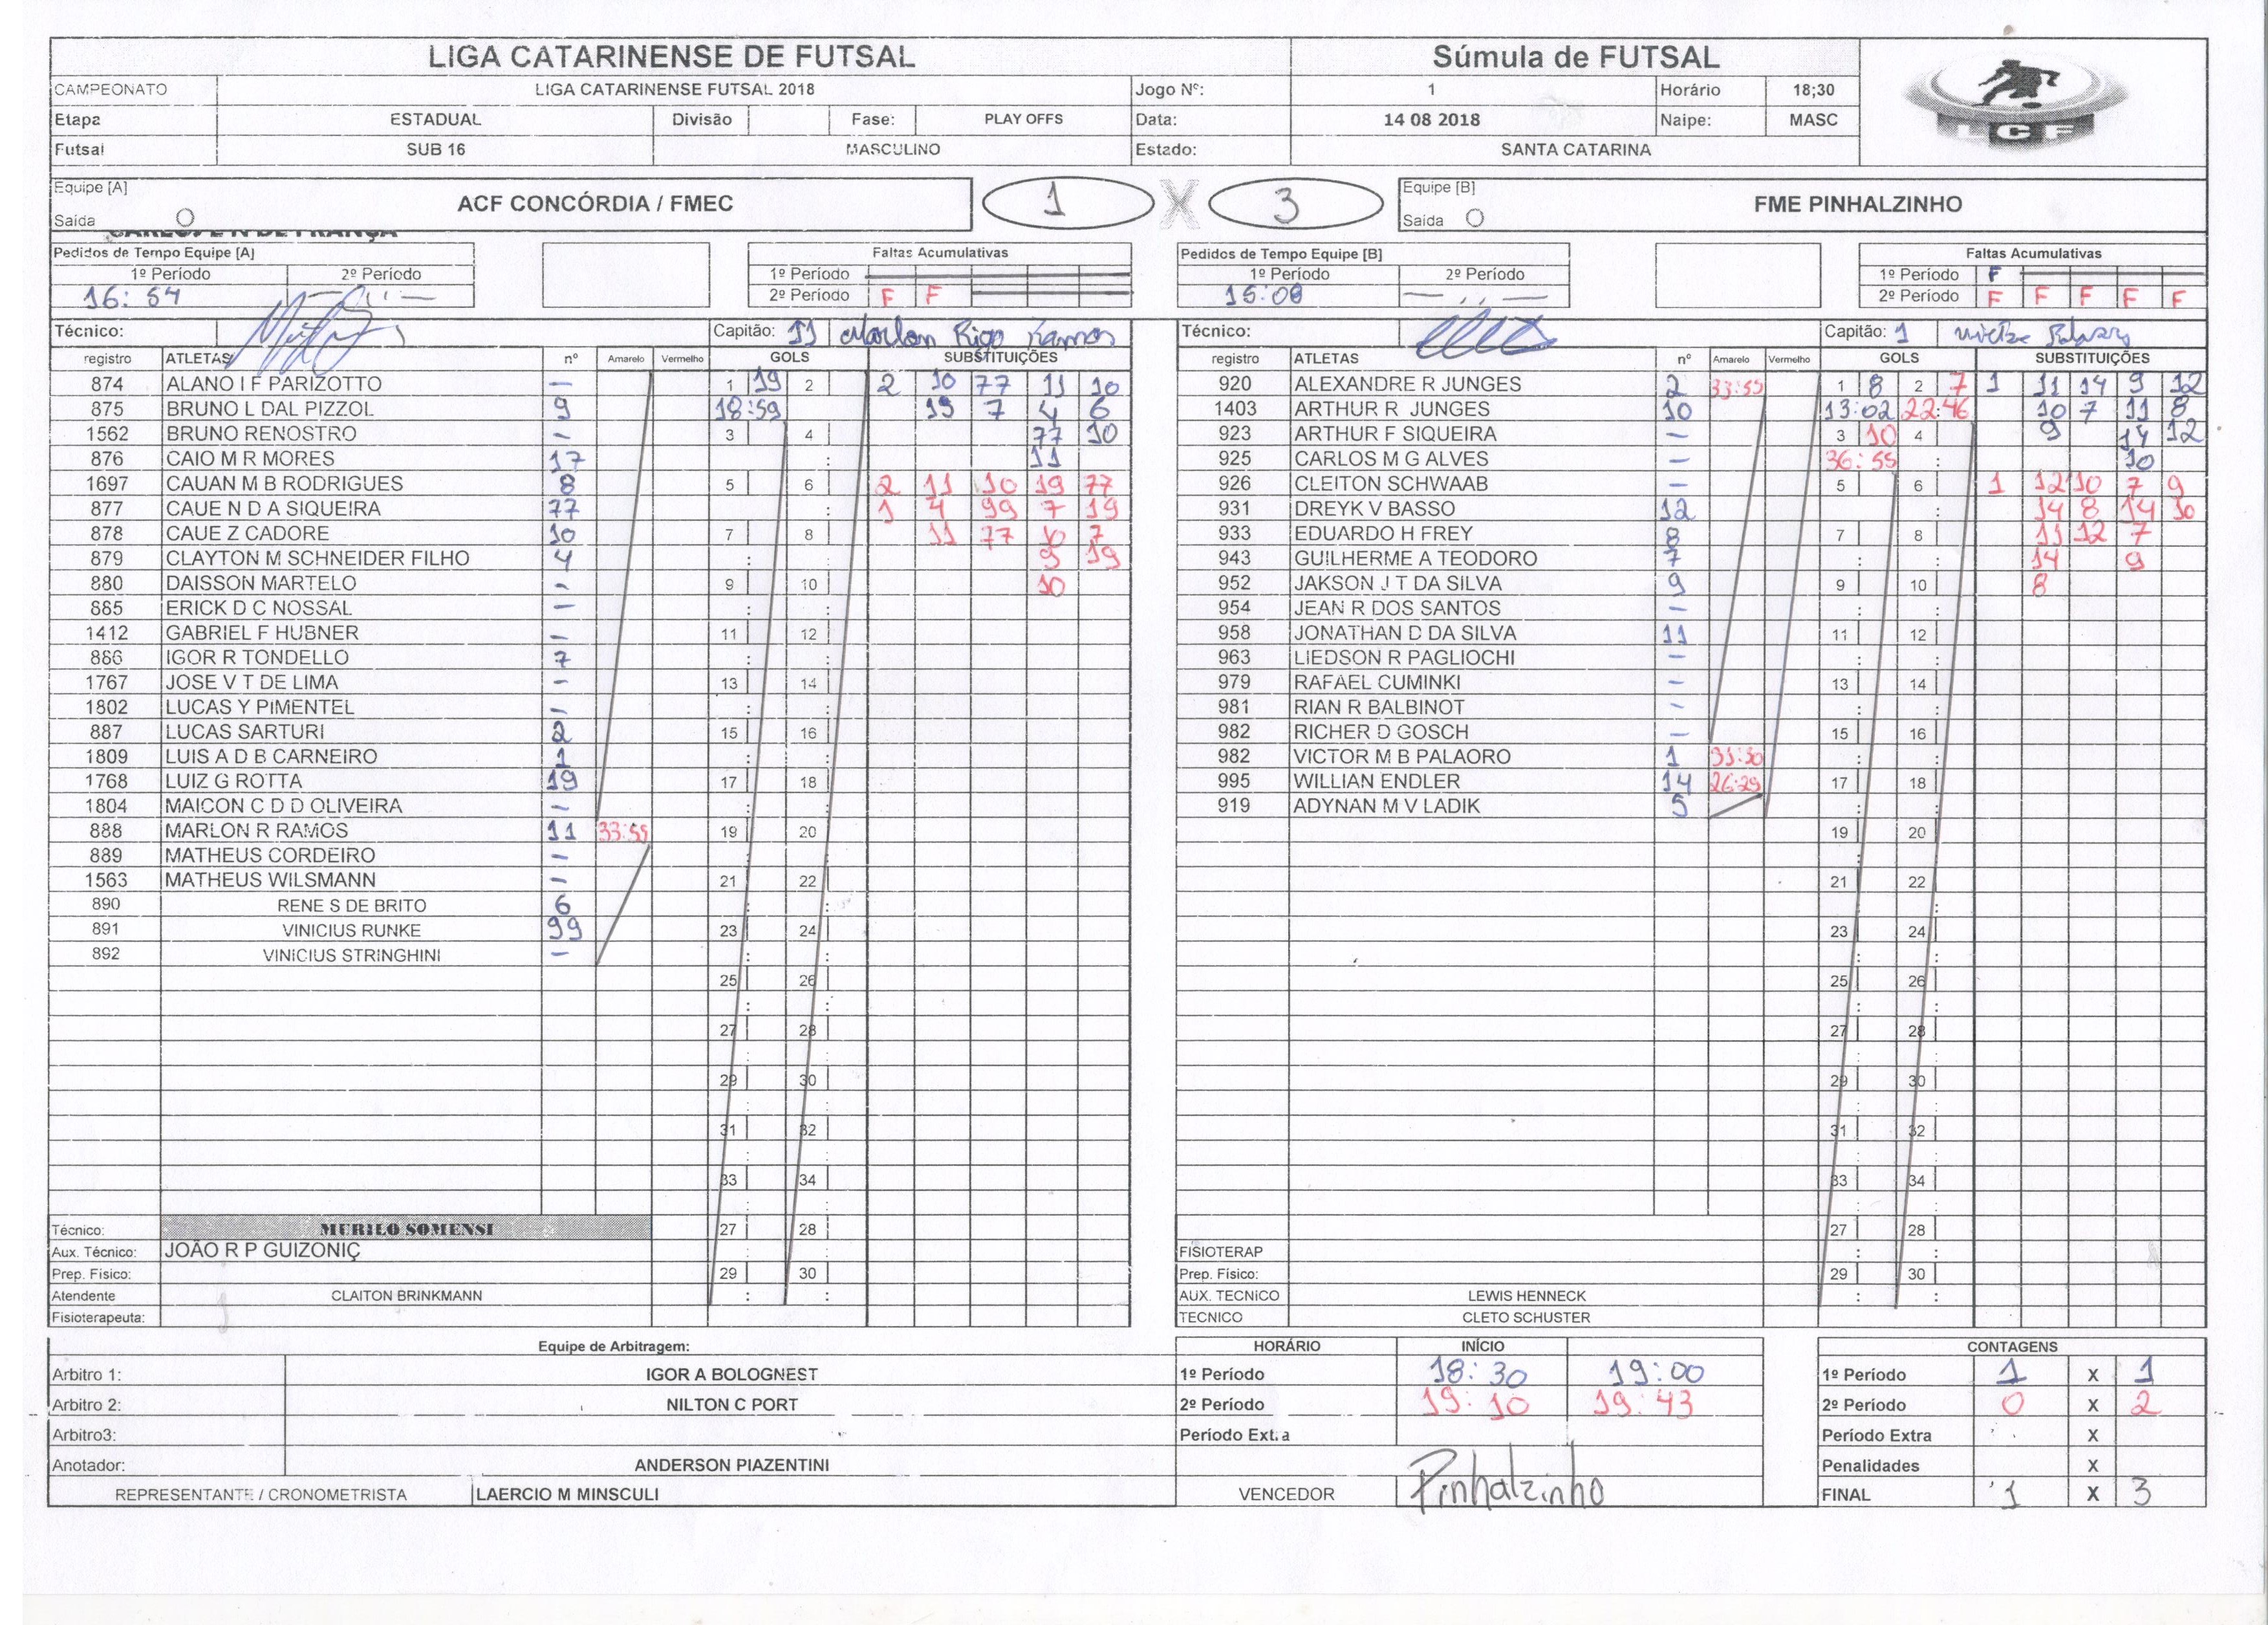 LIGA CATARINENSE DE FUTSAL Súmula de FUTSAL
CAMPEONATO LIGA CATARINENSE FUTSAL 2018 Jogo Nº: 1 Horário 18;30
Etapa ESTADUAL Divisão Fase: PLAY OFFS Data: 14 08 2018 Naipe: MASC
Futsal SUB 16 MASCULINO Estado: SANTA CATARINA
LCF
Equipe [A] ACF CONCÓRDIA / FMEC 1 X 3 Equipe [B] FME PINHALZINHO
Saída Saída
Pedidos de Tempo Equipe [A] Faltas Acumulativas Pedidos de Tempo Equipe [B] Faltas Acumulativas
1º Período 2º Período 1º Período 1º Período 2º Período 1º Período F
16:54 2º Período F F 15:08 2º Período F F F F F
Técnico: Capitão: 11 Marlon Rigo Ramos Técnico: Capitão: 1
registro ATLETAS nº Amarelo Vermelho GOLS SUBSTITUIÇÕES registro ATLETAS nº Amarelo Vermelho GOLS SUBSTITUIÇÕES
874 ALANO I F PARIZOTTO — 1 19 2 2 10 77 11 10 920 ALEXANDRE R JUNGES 2 33:55 1 8 2 7 1 11 14 9 12
875 BRUNO L DAL PIZZOL 9 18:59 19 7 4 6 1403 ARTHUR R JUNGES 10 13:02 22:46 10 7 11 8
1562 BRUNO RENOSTRO - 3 4 77 10 923 ARTHUR F SIQUEIRA - 3 10 4 9 14 12
876 CAIO M R MORES 17 : 11 925 CARLOS M G ALVES - 36:55 : 10
1697 CAUAN M B RODRIGUES 8 5 6 2 11 10 19 77 926 CLEITON SCHWAAB - 5 6 1 12 10 7 9
877 CAUE N D A SIQUEIRA 77 : 1 4 99 7 19 931 DREYK V BASSO 12 : 14 8 14 10
878 CAUE Z CADORE 10 7 8 11 77 10 7 933 EDUARDO H FREY 8 7 8 11 12 7
879 CLAYTON M SCHNEIDER FILHO 4 : : 9 19 943 GUILHERME A TEODORO 7 : : 14 9
880 DAISSON MARTELO - 9 10 10 952 JAKSON J T DA SILVA 9 9 10 8
885 ERICK D C NOSSAL - : : 954 JEAN R DOS SANTOS - : :
1412 GABRIEL F HUBNER - 11 12 958 JONATHAN D DA SILVA 11 11 12
886 IGOR R TONDELLO 7 : : 963 LIEDSON R PAGLIOCHI - : :
1767 JOSE V T DE LIMA - 13 14 979 RAFAEL CUMINKI - 13 14
1802 LUCAS Y PIMENTEL - : : 981 RIAN R BALBINOT - : :
887 LUCAS SARTURI 2 15 16 982 RICHER D GOSCH - 15 16
1809 LUIS A D B CARNEIRO 1 : : 982 VICTOR M B PALAORO 1 : :
1768 LUIZ G ROTTA 19 17 18 995 WILLIAN ENDLER 14 26:29 17 18
1804 MAICON C D D OLIVEIRA - : : 919 ADYNAN M V LADIK 5 : :
888 MARLON R RAMOS 11 33:55 19 20 19 20
889 MATHEUS CORDEIRO - : :
1563 MATHEUS WILSMANN - 21 22 21 22
890 RENE S DE BRITO 6 : :
891 VINICIUS RUNKE 99 23 24 23 24
892 VINICIUS STRINGHINI - : :
25 26 25 26
27 28 27 28
29 30 29 30
31 32 31 32
33 34 33 34
Técnico: MURILO SOMENSI 27 28 27 28
Aux. Técnico: JOÃO R P GUIZONIÇ : : FISIOTERAP : :
Prep. Físico: 29 30 Prep. Físico: 29 30
Atendente CLAITON BRINKMANN : : AUX. TECNICO LEWIS HENNECK : :
Fisioterapeuta: TECNICO CLETO SCHUSTER
Equipe de Arbitragem: HORÁRIO INÍCIO CONTAGENS
Arbitro 1: IGOR A BOLOGNEST 1º Período 18:30 19:00 1º Período 1 X 1
Arbitro 2: NILTON C PORT 2º Período 19:10 19:43 2º Período 0 X 2
Arbitro3: Período Extra Período Extra X
Anotador: ANDERSON PIAZENTINI Penalidades X
REPRESENTANTE / CRONOMETRISTA LAERCIO M MINSCULI VENCEDOR Pinhalzinho FINAL 1 X 3